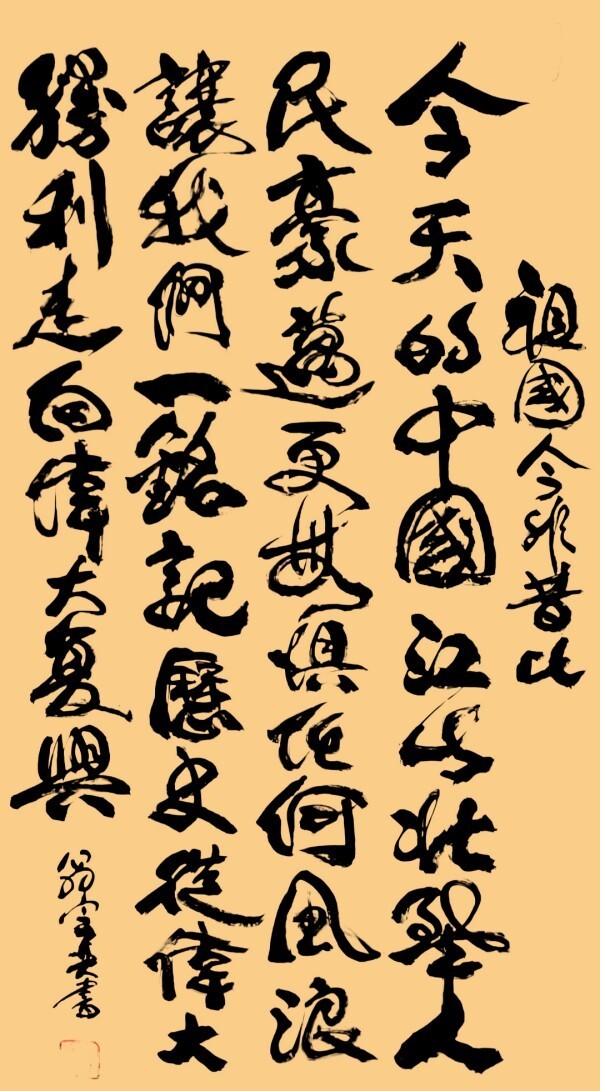 祖國今非昔比
今天的中國江山壯麗人
民豪邁更無惧任何風浪
讓我們一銘記歷史從偉大
勝利走向偉大复興
書